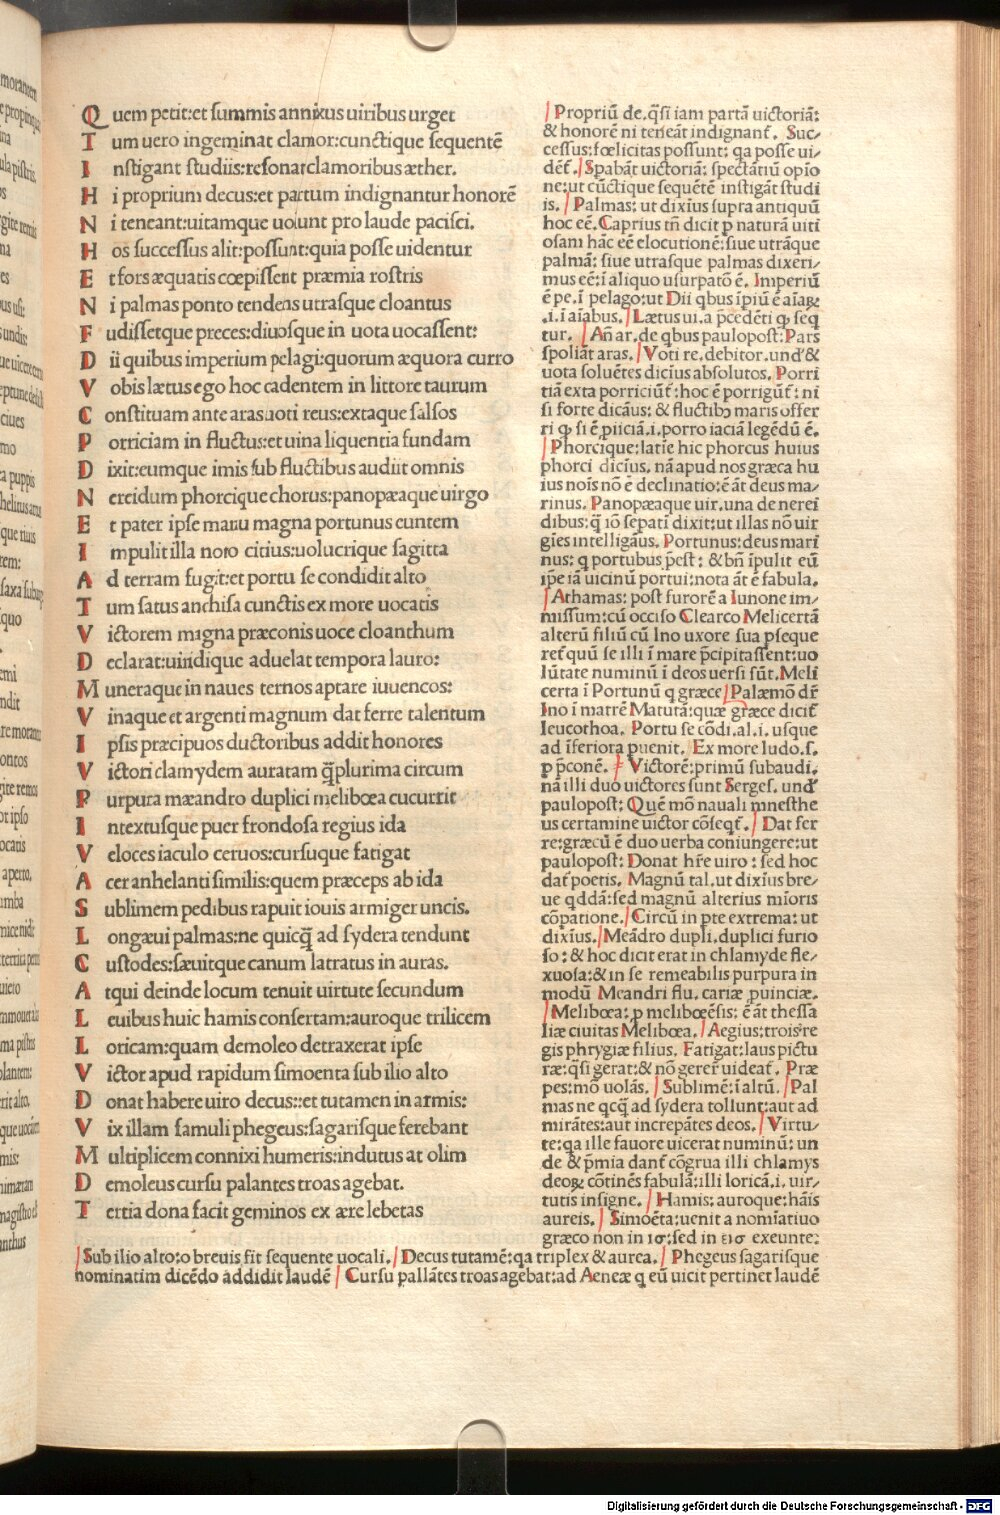 Quem petit:et summis annixus uiribus urget
Tum uero ingeminat clamor:cunctique sequentē
Instigant studiis:resonat clamoribus æther.
Hi proprium decus:et partum indignantur honorē
Ni teneant:uitamque uolunt pro laude pacisci.
Hos successus alit:possunt:quia posse uidentur
Et fors æquatis cœpissent præmia rostris
Ni palmas ponto tendens utrasque cloantus
Fudissetque preces:diuosque in uota uocassent:
Dii quibus imperium pelagi:quorum æquora curro
Vobis lætus ego hoc cadentem in littore taurum
Constituam ante aras uoti reus:extaque salsos
Porriciam in fluctus:et uina liquentia fundam
Dixit:eumque imis sub fluctibus audiit omnis
Nereidum phorcique chorus:panopæaque uirgo
Et pater ipse manu magna portunus euntem
Impulit illa noto citius:uolucrique sagitta
Ad terram fugit:et portu se condidit alto
Tum satus anchisa cunctis ex more uocatis
Victorem magna præconis uoce cloanthum
Declarat:uiridique aduelat tempora lauro:
Muneraque in naues ternos aptare iuuencos:
Vinaque et argenti magnum dat ferre talentum
Ipsis præcipuos ductoribus addit honores
Victori clamydem auratam q̄plurima circum
Purpura mæandro duplici melibœa cucurrit
Intextusque puer frondosa regius ida
Veloces iaculo ceruos:cursuque fatigat
Acer anhelanti similis:quem præceps ab ida
Sublimem pedibus rapuit iouis armiger uncis.
Longæui palmas:ne quicq̄ ad sydera tendunt
Custodes:sæuitque canum latratus in auras.
Atqui deinde locum tenuit uirtute secundum
Leuibus huic hamis consertam:auroque trilicem
Loricam:quam demoleo detraxerat ipse
Victor apud rapidum simoenta sub ilio alto
Donat habere uiro decus::et tutamen in armis:
Vix illam famuli phegeus:sagarisque ferebant
Multiplicem connixi humeris:indutus at olim
Demoleus cursu palantes troas agebat.
Tertia dona facit geminos ex ære lebetas
Propriū de. q̄si iam partā uictoriā:
& honorē ni teneāt indignant̄. Suc-
cessus:fœlicitas possunt: qa posse ui-
dēt̄. Spabāt uictoriā: spectātiū opio
ne:ut cūctique sequētē instigāt studi
is. Palmas: ut dixius supra antiquū
hoc eē. Caprius tn̄ dicit p naturā uiti
osam hāc eē elocutionē:siue utrāque
palmā: siue utrasque palmas dixeri-
mus eē:ī aliquo usurpatō ē. Imperiū
ē pe.ī pelago:ut Dii qbus īpiū ē aīaꝝ
.i.ī aīabus. Lætus ui.a p̄cedēti q̄ seq̄
tur. An̄ ar.de qbus paulopost: Pars
spoliāt aras. Voti re.debitor.und̄ &
uota soluētes dicius absolutos. Porri
tiā exta porriciūt̄:hoc ē porrigūt̄: ni
si forte dicāus: & fluctibꝫ maris offer
ri q̄ si ē piiciā.i.porro iaciā legēdū ē.
Phorcique:latie hic phorcus huius
phorci dicius. nā apud nos græca hu
ius nois nō ē declinatio:ē āt deus ma-
rinus. Panopæaque uir.una de nerei
dibus:q̄ iō sepati dixit:ut illas nō uir
gies intelligāus. Portunus:deus mari
nus: q portubus p̄est: & bn̄ īpulit eū
ip̄e iā uicinū portui:nota āt ē fabula.
Athamas: post furorē a Iunone im-
missum:cū occiso Clearco Melicertā
alterū filiū cū Ino uxore sua pseque
ret̄ quū se illi ī mare p̄cipitassent:uo
lūtate numinū ī deos uersi sūt. Meli
certa ī Portunū q græce Palæmō dr̄
Ino ī matrē Matutā:quæ græce dicit̄
leucothoa. Portu se cōdi.al.i. usque
ad īferiora puenit. Ex more ludo.s.
p p̄conē. Victorē:primū subaudi.
nā illi duo uictores sunt Serges. und̄
paulopost: Quē mō nauali mnesthe
us certamine uictor cōseqt̄. Dat fer
re:græcū ē duo uerba coniungere:ut
paulopost: Donat hr̄e uiro : sed hoc
dat̄ poetis. Magnū tal.ut dixius bre-
ue qddā:sed magnū alterius mioris
cōpatione. Circū in pte extrema: ut
dixius. Meādro dupli.duplici furio
so: & hoc dicit erat in chlamyde fle-
xuosa:& in se remeabilis purpura in
modū Meandri flu. cariæ puinciæ.
Melibœa: p melibœēsis: ē āt thessa
liæ ciuitas Melibœa. Regius:trois re
gis phrygiæ filius. Fatigat:laus pictu
ræ:q̄si gerat:& nō gerer̄ uideat̄. Præ
pes:mō uolās. Sublimē:ī altū. Pal
mas ne qcq̄ ad sydera tollunt:aut ad
mirātes:aut increpātes deos. Virtu-
te:qa ille fauore uicerat numinū: un
de & p̄mia dant̄ cōgrua illi chlamys
deoꝝ cōtinēs fabulā:illi loricā.i. uir-
tutis insigne. Hamis: auroque:hāis
aureis. Simoēta:uenit a nomiatiuo
græco non in ισ:sed in εισ exeunte:
Sub ilio alto:o breuis fit sequente uocali. Decus tutamē:qa triplex & aurea. Phegeus sagarisque
nominatim dicēdo addidit laudē Cursu pallātes troas agebat:ad Aeneæ q eū uicit pertinet laudē
Digitalisierung gefördert durch die Deutsche Forschungsgemeinschaft - DFG